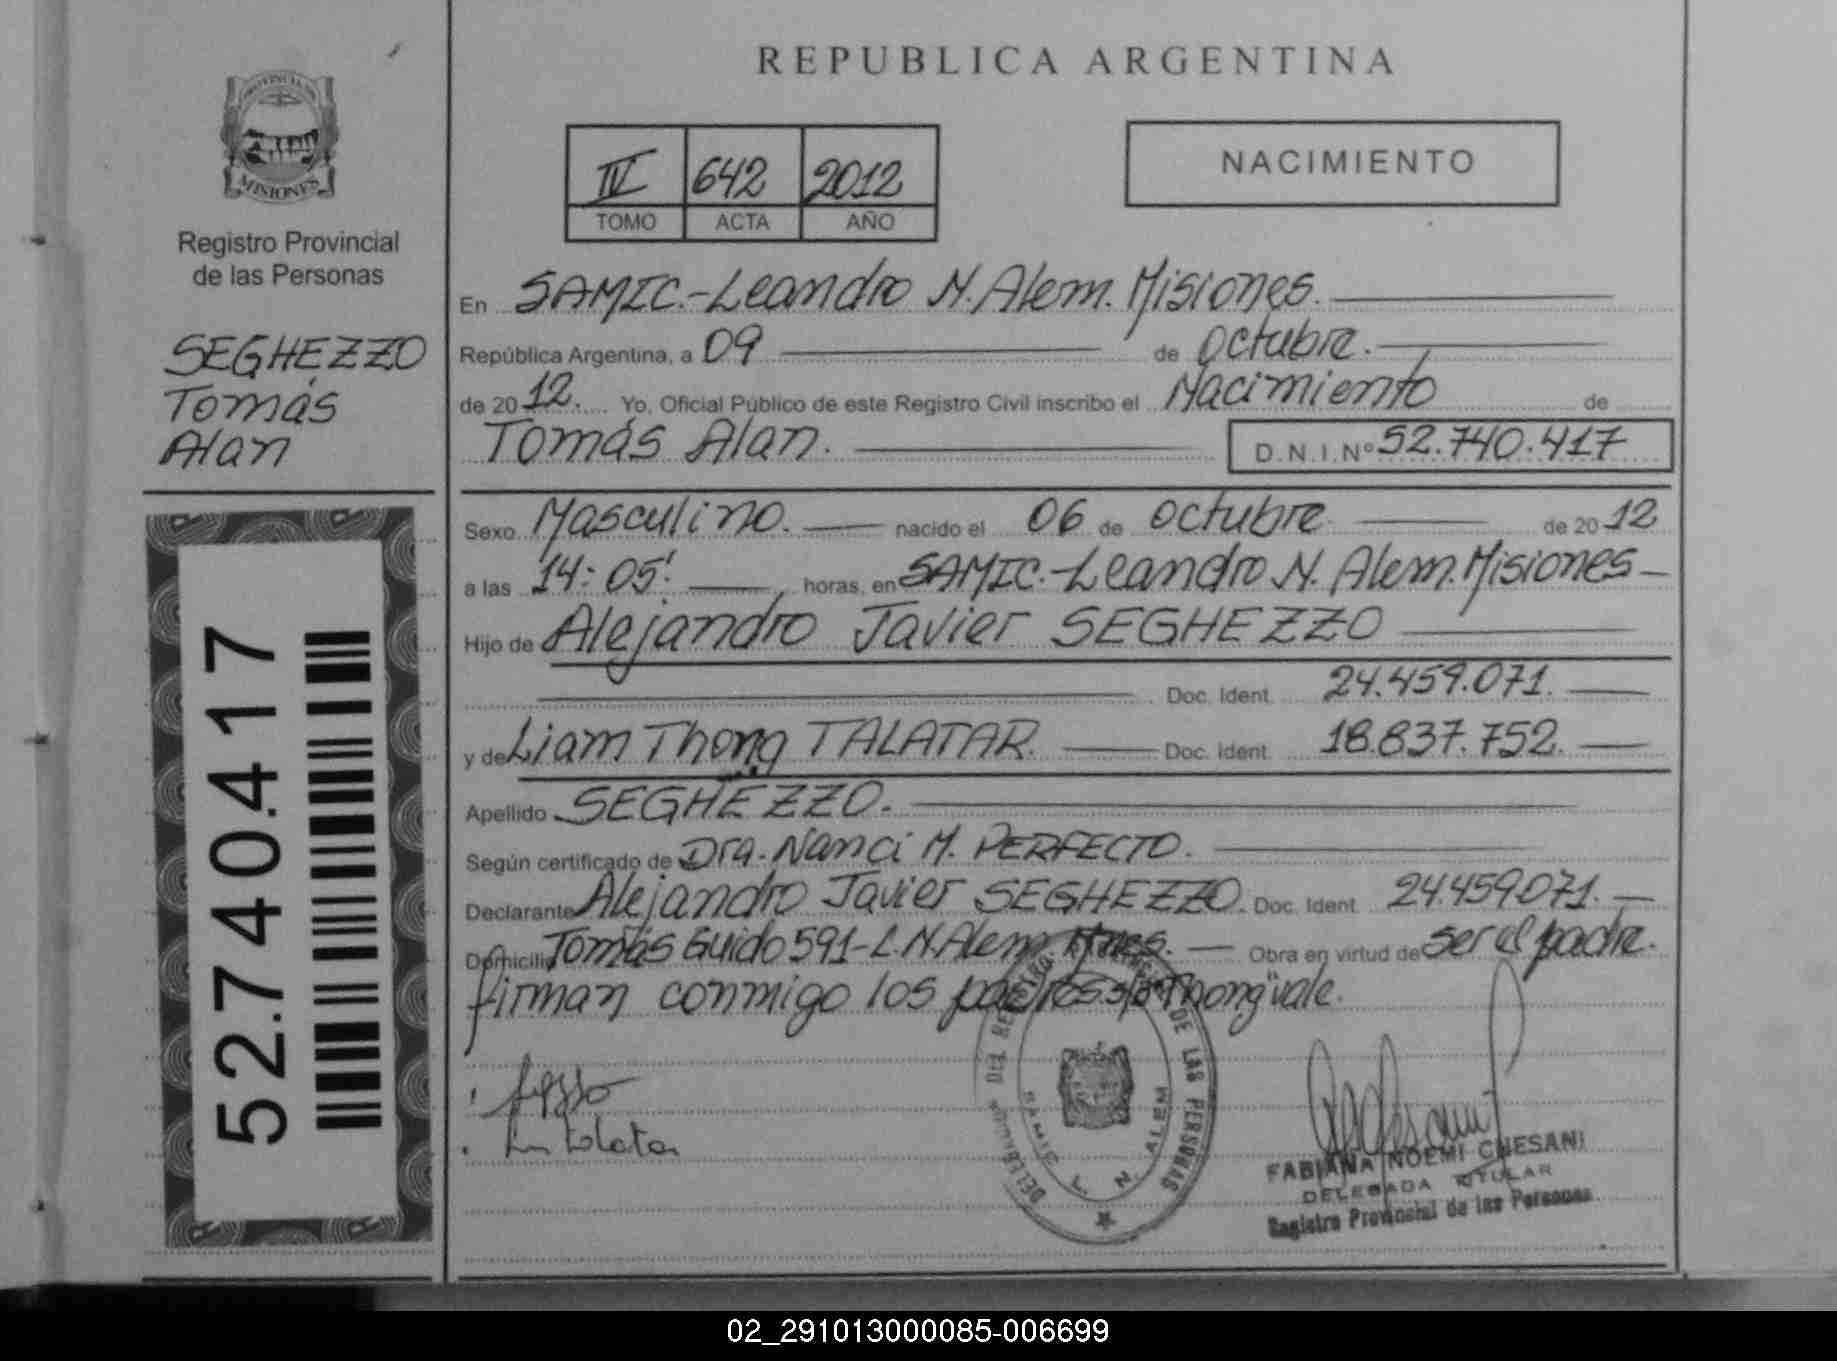 REPUBLICA ARGENTINA
PROVINCIA DE
MISIONES
Registro Provincial
de las Personas
SEGHEZZO
Tomás
Alan
52.740.417
IV 642 2012
TOMO ACTA AÑO
NACIMIENTO
En SAMIC.-Leandro N. Alem. Misiones.
República Argentina, a 09 de octubre.
de 2012. Yo, Oficial Público de este Registro Civil inscribo el Nacimiento de
Tomás Alan. D.N.I.Nº 52.740.417
Sexo Masculino. nacido el 06 de octubre de 2012
a las 14:05' horas, en SAMIC.-Leandro N. Alem. Misiones-
Hijo de Alejandro Javier SEGHEZZO
Doc. Ident. 24.459.071.
y de Liam Thong TALATAR. Doc. Ident. 18.837.752.
Apellido SEGHEZZO.
Según certificado de Dra. Nanci M. PERFECTO.
Declarante Alejandro Javier SEGHEZZO. Doc. Ident. 24.459.071.
Domicilio Tomás Guido 591-L.N.Alem. Mnes. Obra en virtud de ser el padre.
firman conmigo los padres. s/b Thong vale.
DE LAS PERSONAS
SAMIC L. N. ALEM
FABIANA NOEMI CHESANI
DELEGADA TITULAR
Registro Provincial de las Personas
02_291013000085-006699